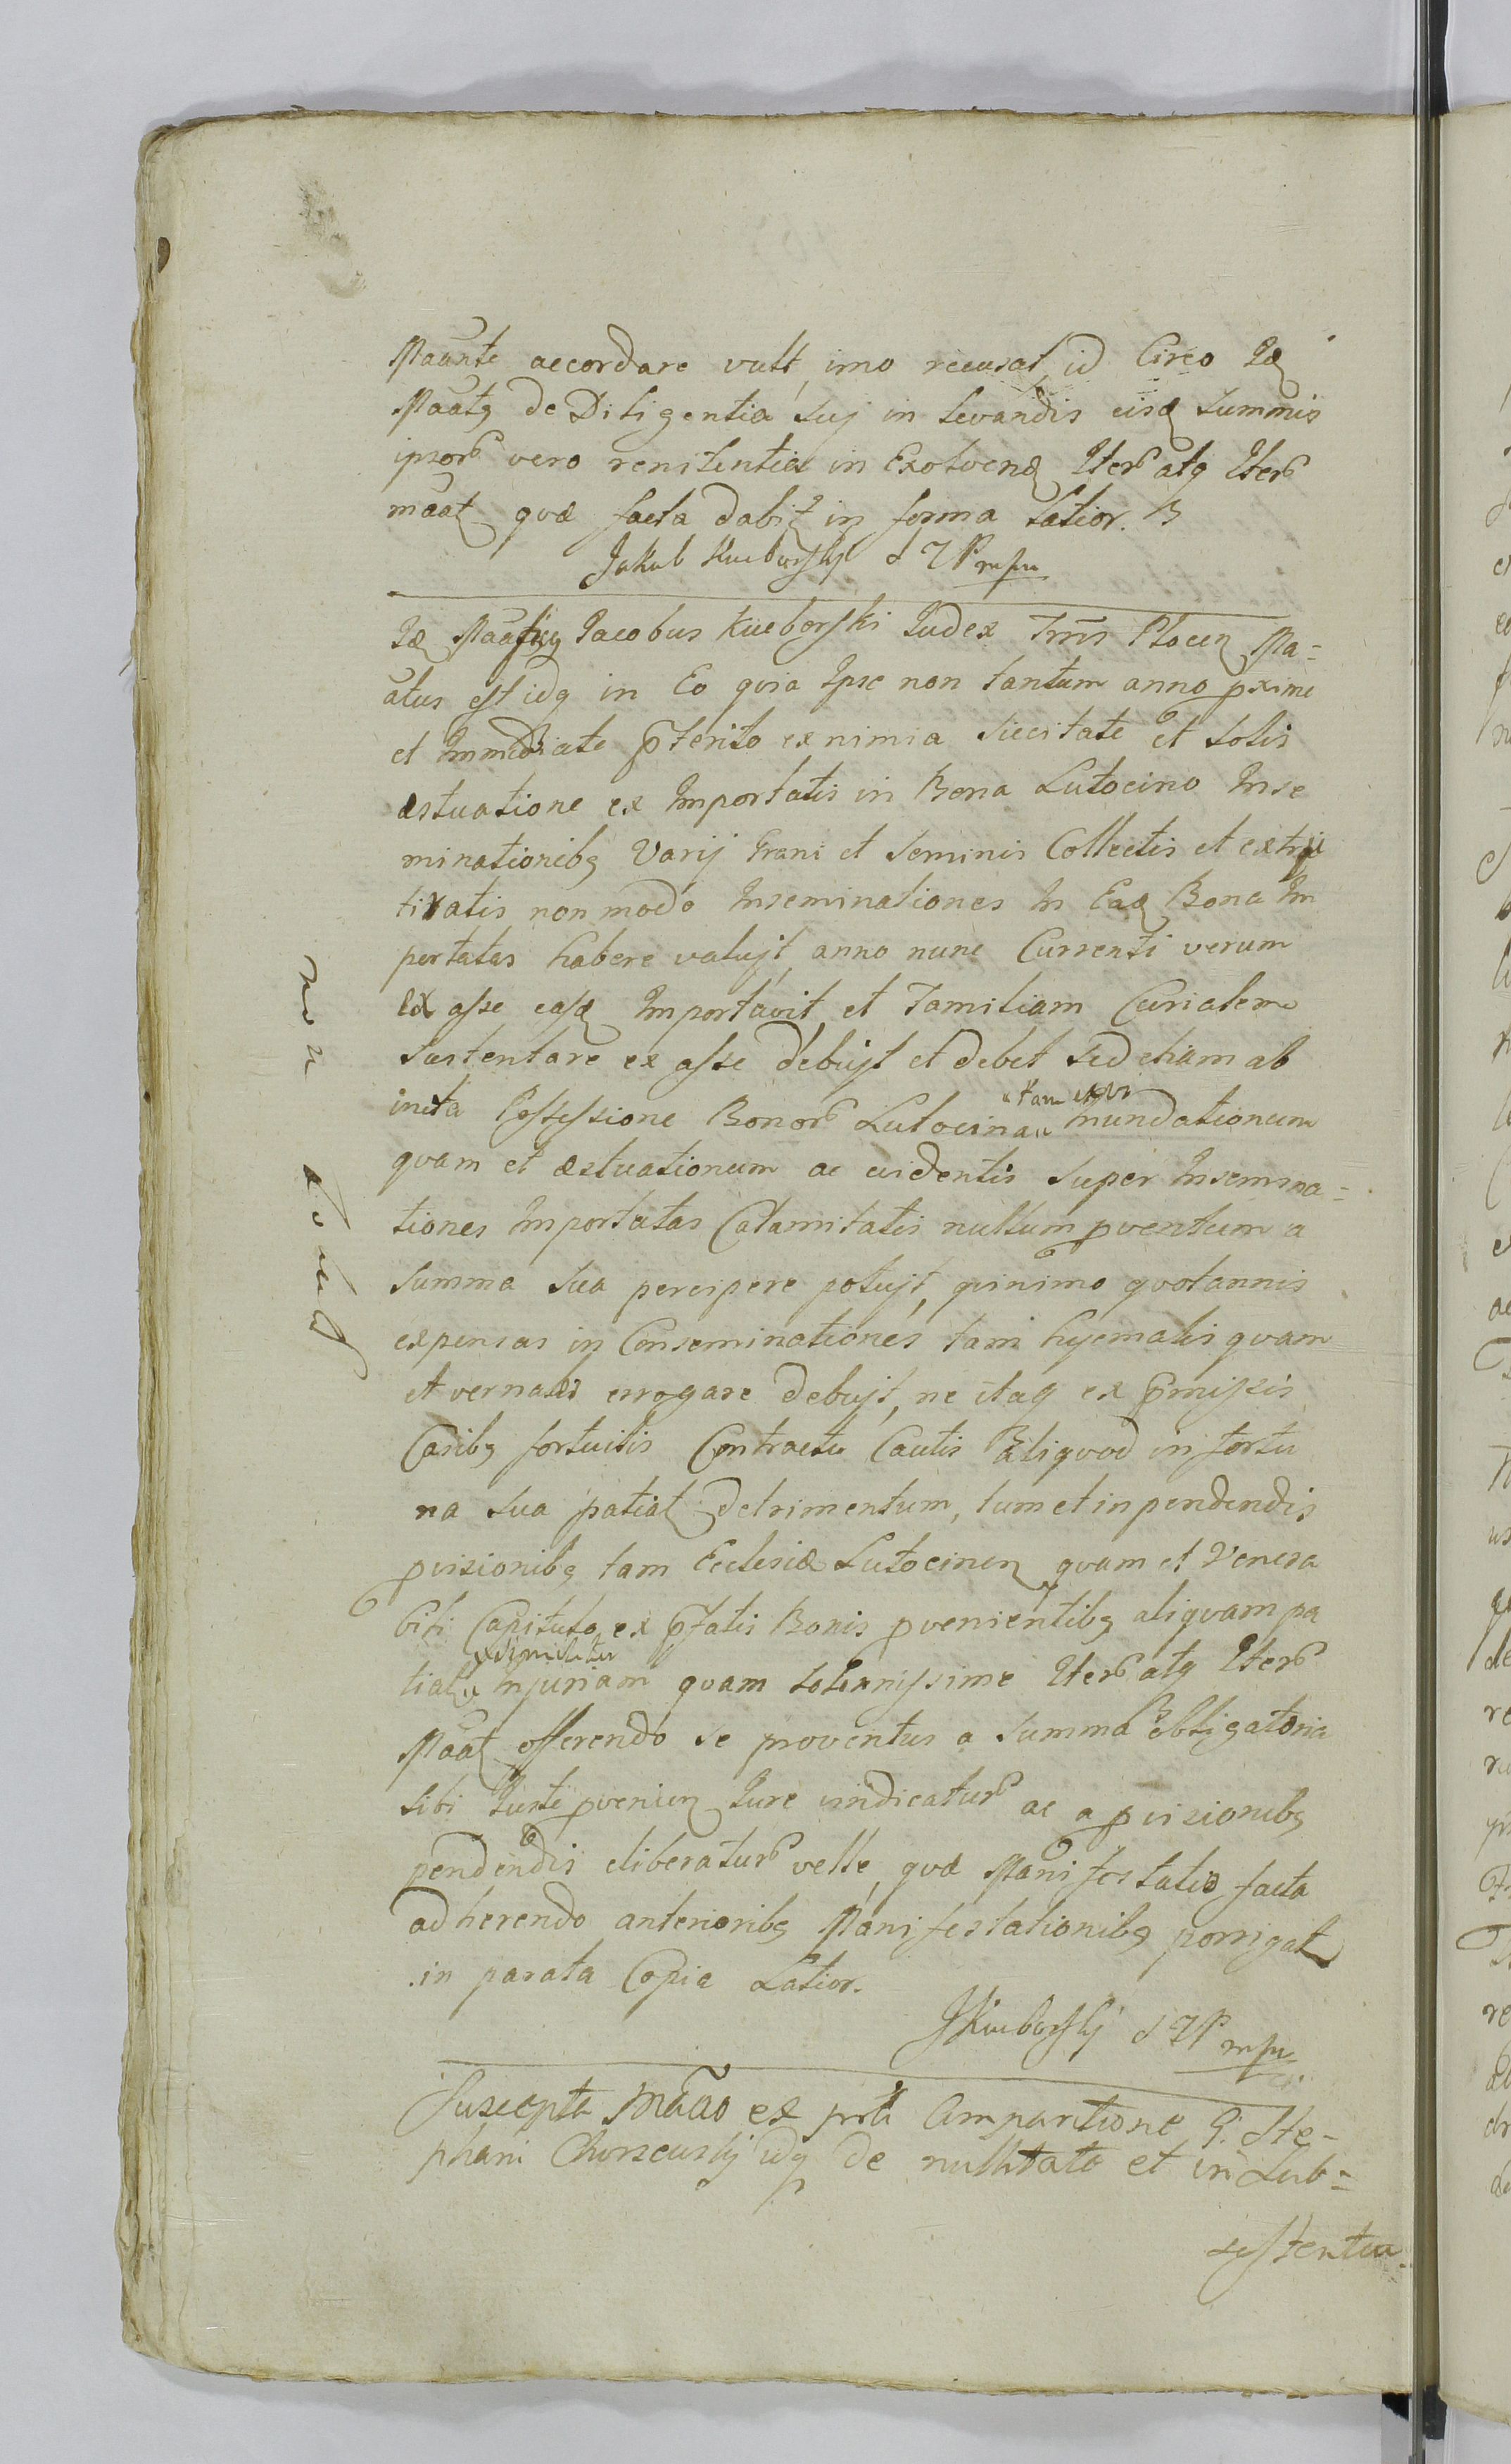 Maante accordare vult, imo recusat, id Circo Iꝺ
Maatꝫ de Diligentia Suj in Levandis eisꝺ Summis
ipsorꝭ vero renitentia in Exolvenꝺ Iterꝭ atq Iterꝭ
māat quæ facta dabit in forma Latior.
Jakub Kuczborskj S Z P mpu
Iꝺ Maatus Jacobus Kuczborski Judex Trrīs Plocen Ma=
atus est idq in Eo quia Ipse non tantum anno pxime
et Immediate pterito ex nimia Siccitate et Solis
æstuatione ex Importatis in Bona Lutocino Inse
minationibꝫ Varij Grani et Seminis Collectis et extri
tiratis non modo Inseminationes In Eaꝺ Bona Im
portatas habere valujt, anno nunc Currenti verum
ex asse easꝺ Importavit et Familiam Curialem
Sustentare ex asse debujt et debet Sed etiam ab
inita Possessione Bonorꝭ Lutocina
tam
Inundationum
quam et æstuationum ac evidentis Super Insemina=
tiones Importatas Calamitatis nullum pventum a
Summa Sua percipere potujt, quinimo quotannis
expensas in Conseminationes tam hyemalis quam
et vernalis errogare debujt, ne itaq ex pmissis
Casibꝫ fortuitis Contractu Cautis Aliquod in fortu
na Sua patiat detrimentum, tum et in pendendis
pvisionibꝫ tam Ecclesiæ Lutocinen quam et Venera
bili Capitulo ex pfatis Bonis pvenientibꝫ aliquam pa
tiat Injuriam quam Solennissime Iterꝭ atq Iterꝭ
Maat offerendo se proventus a Summa obligatoria
Sibi Juste pvenien Jure vindicaturꝭ ac a pvisionibꝫ
pendendis eliberaturꝭ velle, quæ Manifestatio facta
adherendo anterioribꝫ Manifestationibꝫ porrigat
in parata Copia Latior.
JKuczborskj S Z P mpu
Suscepta Māao ex prte Comparitione G. Ste-
phani idq de nullitate et in Sub=
non